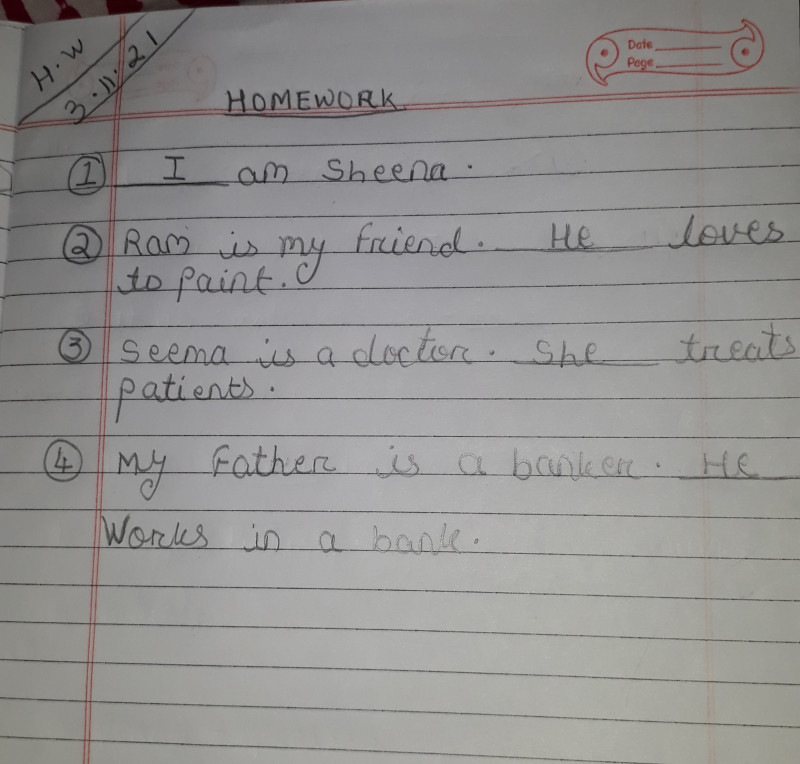 H.W
3.11.21
Date
Page
HOMEWORK
1 I am Sheena.
2 Ram is my friend. He loves
to paint.
3 Seema is a doctor. She treats
patients.
4 My Father is a banker. He
Works in a bank.